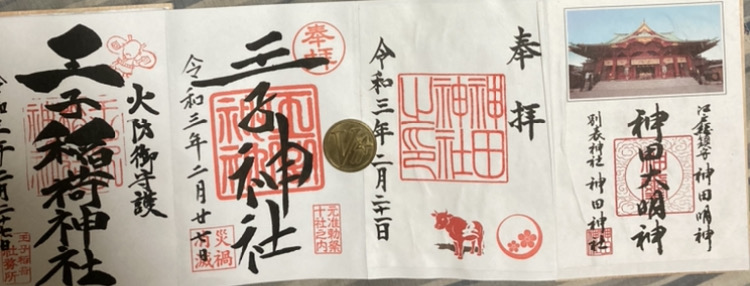 奉拝
神田神社
令和三年二月二十一日
江戸総鎮守 神田明神
神田大明神
別表神社 神田神社
奉拝
王子神社
令和三年二月廿六日
元准勅祭
十社之内
災禍
消滅
火防御守護
王子稲荷神社
王子稲荷
社務所